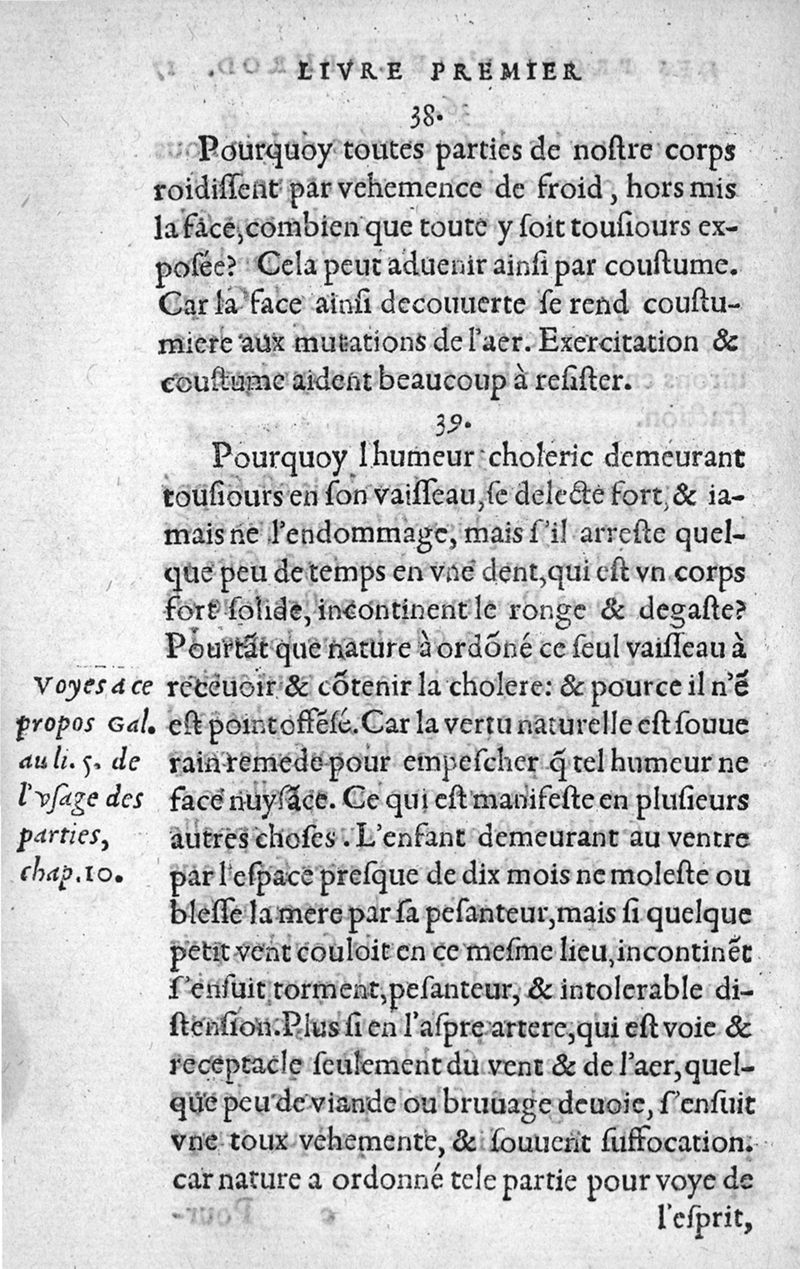 LIVRE PREMIER
38.
Pourquoy toutes parties de noſtre corps
roidiſſent par vehemence de froid, hors mis
la face, combien que toute y ſoit touſiours ex-
poſée? Cela peut aduenir ainſi par couſtume.
Car la face ainſi decouuerte ſe rend couſtu-
miere aux mutations de l'aer. Exercitation &
couſtume aident beaucoup à reſiſter.
39.
Pourquoy l'humeur choleric demeurant
touſiours en ſon vaiſſeau, ſe delecte fort, & ia-
mais ne l'endommage, mais ſ'il arreſte quel-
que peu de temps en vne dent, qui eſt vn corps
fort ſolide, incontinent le ronge & degaſte?
Pourtãt que nature à ordõné ce ſeul vaiſſeau à
receuoir & cõtenir la cholere: & pource il n'ẽ
eſt point offẽſé. Car la vertu naturelle eſt ſouue
rain remede pour empeſcher q̃ tel humeur ne
face nuyſãce. Ce qui eſt manifeſte en pluſieurs
autres choſes. L'enfant demeurant au ventre
par l'eſpace preſque de dix mois ne moleſte ou
bleſſe la mere par ſa peſanteur, mais ſi quelque
petit vent couloit en ce meſme lieu, incontinẽt
ſ'enſuit torment, peſanteur, & intolerable di-
ſtenſion. Plus ſi en l'aſpre artere, qui eſt voie &
receptacle ſeulement du vent & de l'aer, quel-
que peu de viande ou bruuage deuoie, ſ'enſuit
vne toux vehemente, & ſouuent ſuffocation.
car nature a ordonné tele partie pour voye de
l'eſprit,
Voyes à ce
propos Gal.
au li. 5. de
l'vſage des
parties,
chap. 10.